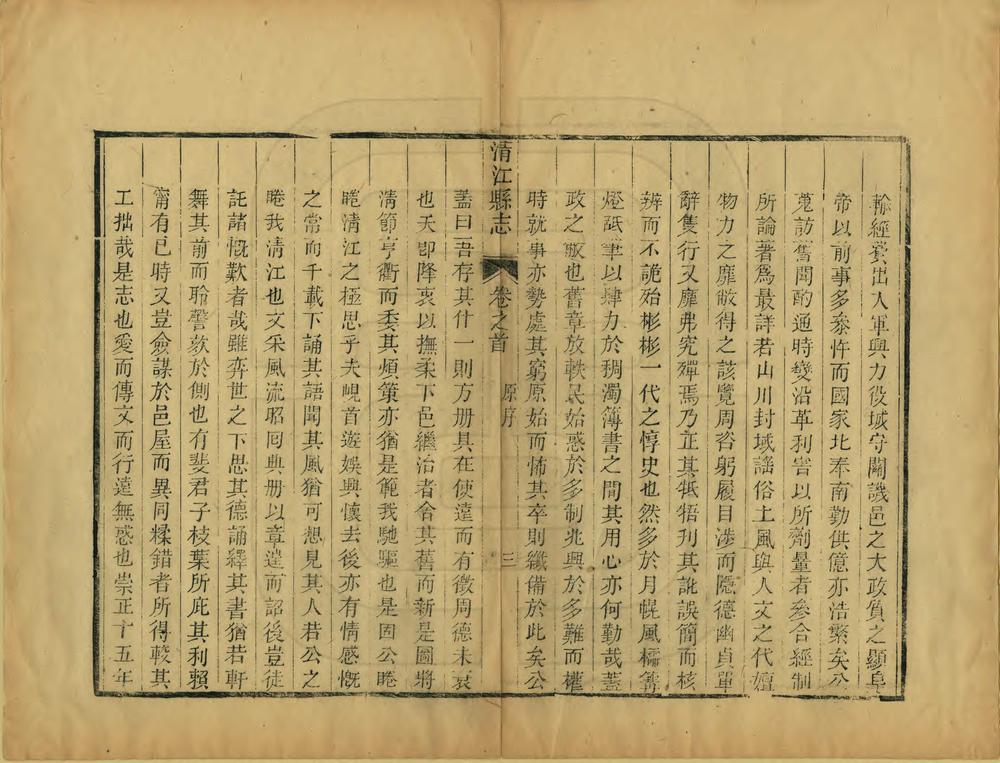 輸經賚出入軍興力役城守關譏邑之大政質之顯皇
帝以前事多泰忤而國家北奉南勤供億亦浩繁矣公
蒐訪舊聞酌通時變沿革利害以所劑量者參合經制
所論著爲最詳若山川封域謡俗土風與人文之代嬗
物力之靡敝得之該覽周咨躬履目渉而隱德幽貞單
辭隻行又靡弗究殫焉乃正其牴牾刋其訛誤簡而核
辨而不詭殆彬彬一代之惇史也然多於月幌風櫺篝
燈砥筆以肆力於稠濁簿書之間其用心亦何勤哉蓋
政之敝也舊章放軼民始惑於多制兆興於多難而權
時就事亦勢處其窮原始而悕其卒則纖備於此矣公
清江縣志 卷之首 原序 三
蓋曰吾存其什一則方册具在使遠而有徵周德未衰
也天卽降衷以撫柔下邑繼治者舍其舊而新是圖將
淸節亨衢而委其煩策亦猶是範我馳驅也是固公睠
睠淸江之極思乎夫峴首遊娛興懷去後亦有情感慨
之常而千載下誦其語聞其風猶可想見其人若公之
睠我淸江也文采風流昭囘典册以章逹而詔後豈徒
託諸慨歎者哉雖弈世之下思其德誦繹其書猶若軒
舞其前而聆謦欬於側也有斐君子枝葉所庇其利賴
甯有已時又豈僉謀於邑屋而異同糅錯者所得較其
工拙哉是志也愛而傳文而行遠無惑也崇正十五年